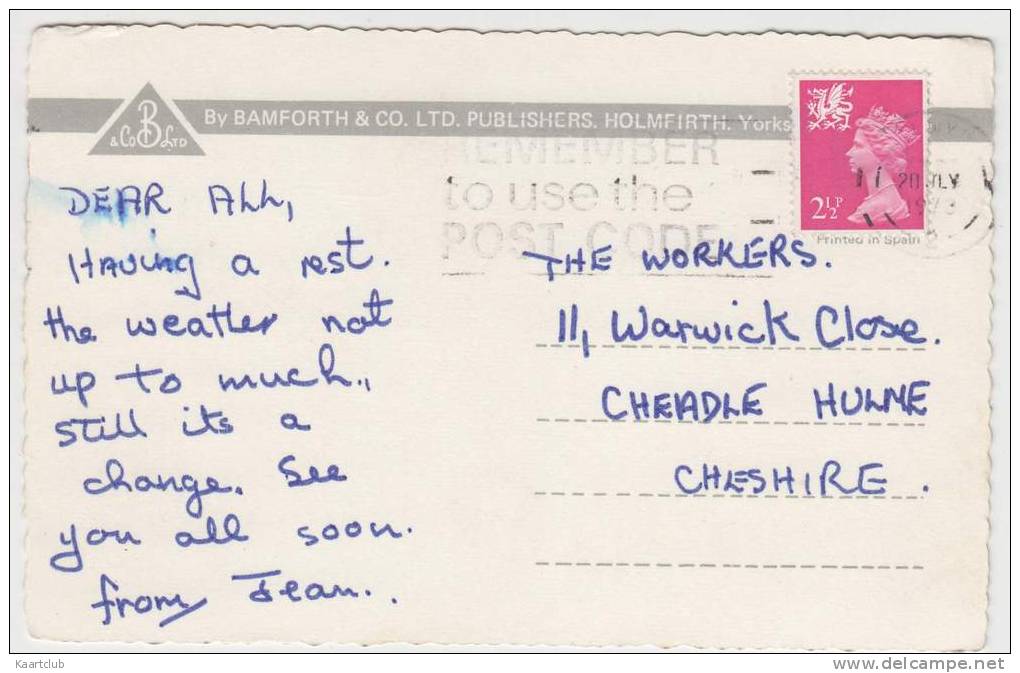 By BAMFORTH & CO. LTD. PUBLISHERS. HOLMFIRTH. Yorks
B
& Co LTD
REMEMBER
to use the
POST CODE
2½P
20 JLY
1973
Printed in Spain
DEAR ALL,
HAVing a rest.
the weather not
up to much.,
still its a
change. See
you all soon.
from Jean..
THE WORKERS.
11, Warwick Close.
CHEADLE HULME
CHESHIRE.
Kaartclub
www.delcampe.net